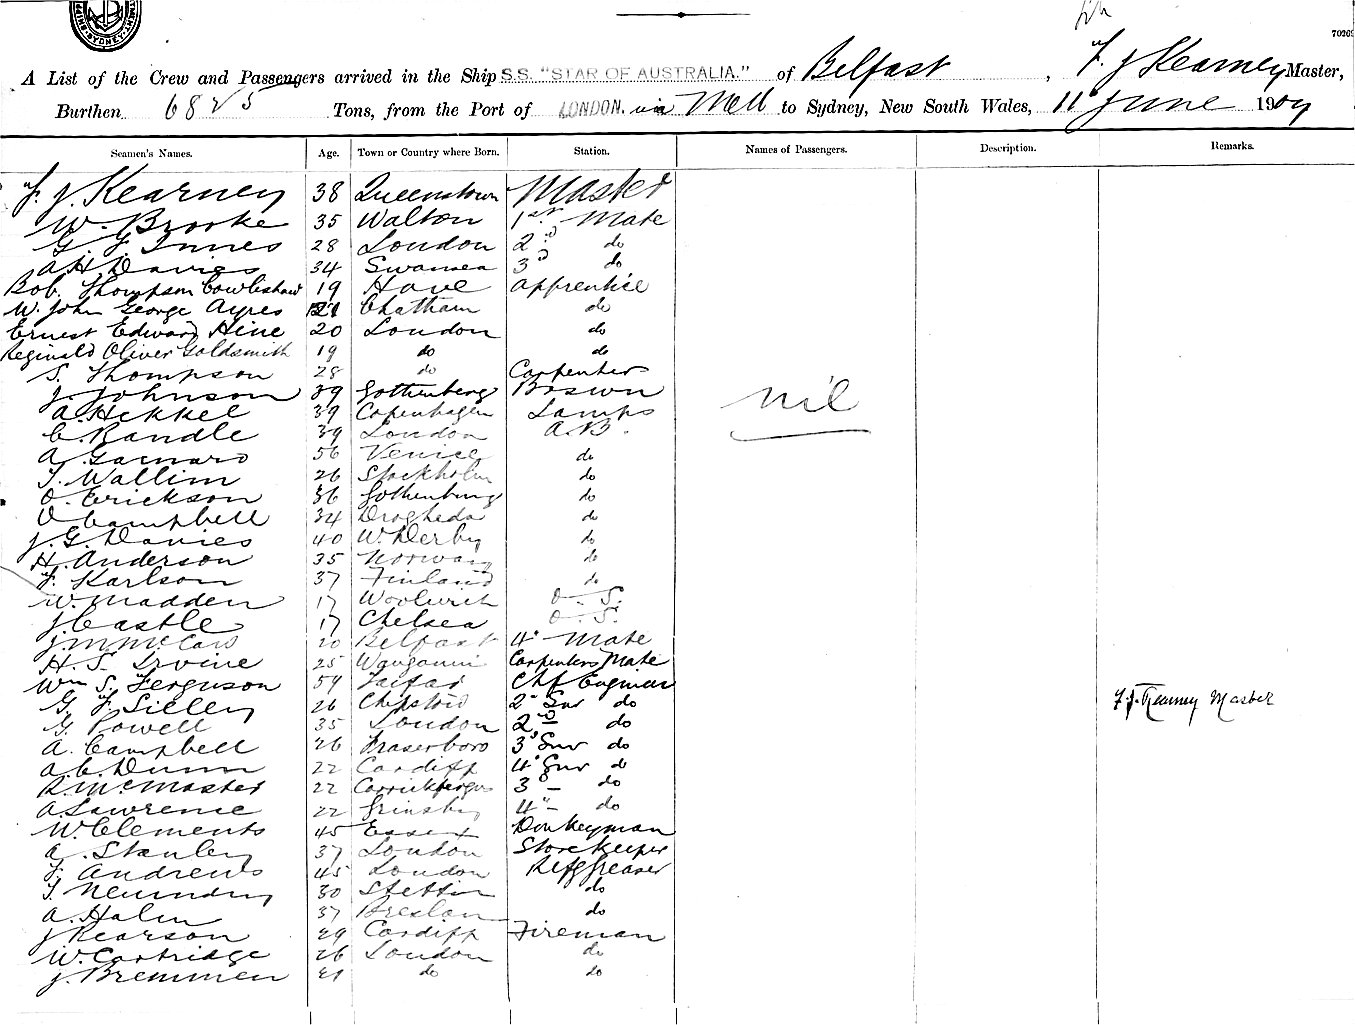 SYDNEY
7026
A List of the Crew and Passengers arrived in the Ship S.S. "STAR OF AUSTRALIA." of Belfast, F. J. Kearney Master,
Burthen 6825 Tons, from the Port of LONDON. via Melb to Sydney, New South Wales, 11 June 1904
Seamen's Names. Age. Town or Country where Born. Station. Names of Passengers. Description. Remarks.
F. J. Kearney 38 Queenstown Master
W. Brooke 35 Walton 1st Mate
G. J. Innes 28 London 2nd do
A. H. Davies 34 Swansea 3d do
Bob. Thompson Cowlishaw 19 Hove Apprentice
W. John George Ayres 21 Chatham do
Ernest Edward Hine 20 London do
Reginald Oliver Goldsmith 19 do do
S. Thompson 28 do Carpenter
J. Johnson 39 Gothenberg Boswn
A. Hekkel 39 Copenhagen Lamps
nil
C. Randle 39 London A.B.
A. 56 Venice do
T. Wallim 26 Stockholm do
O. Erickson 36 Gothenburg do
D Campbell 34 Drogheda do
J. G. Davies 40 W. Derby do
H. Anderson 35 Norway do
F. Karlson 37 Finland do
W. Madden 17 Woolwich O. S.
J. Castle 17 Chelsea O. S.
J. M. McCaw 20 Belfast 4th Mate
H. S. Irvine 25 Wanganui Carpenters Mate
Wm S. Ferguson 54 Chf Engineer
G. F. Silley 26 2d Snr do
F. J. Kearney Master
G. Powell 35 London 2nd do
A. Campbell 26 Fraserboro 3d Snr do
A. C. Dunn 22 Cardiff 4th Snr do
R. McMaster 22 Carrickfergus 3d do
A. Lawrence 22 Grimsby 4th do
W. Clements 45 Essex Donkeyman
A. Stanley 37 London Storekeeper
F. Andrews 45 London Refg Greaser
T. 30 Stettin do
A. Halm 37 Breslau do
J Pearson 29 Cardiff Fireman
W. Cartridge 26 London do
J. Bremmen 21 do do